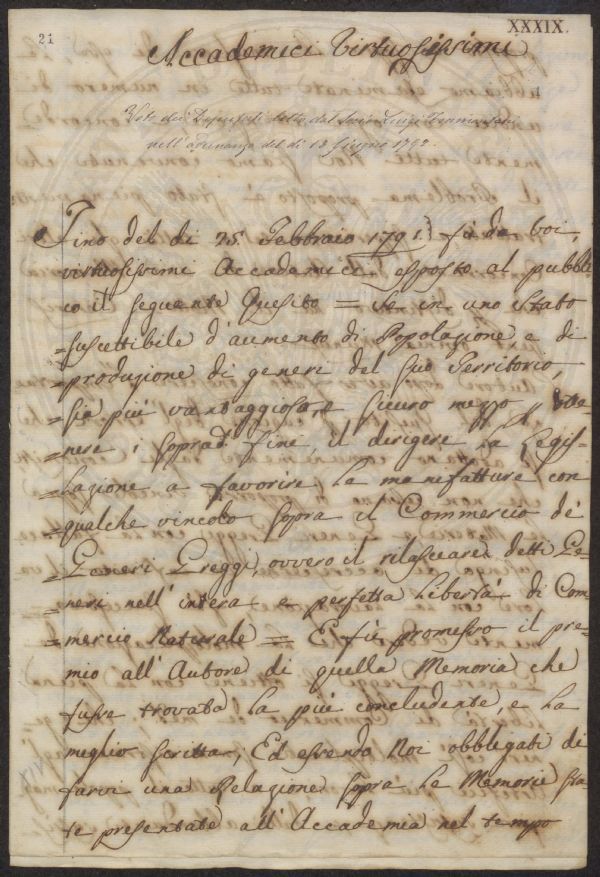 21
XXXIX.
Accademici Virtuosissimi
Voto dei Deputati letto dal Socio Luigi
nell'adunanza del dì 13 Giugno 1792.
Fino del dì 25. Febbraio 1791. fù da Voi,
virtuosissimi Accademici esposto al pubbli
co il seguente Quesito = Se in uno Stato
=suscettibile d'aumento di Popolazione e di
=produzione di generi del suo Territorio,
=sia più vantaggioso, e sicuro mezzo
=nere i soprad. fini, il dirigere la Legis-
=lazione a favorire le manifatture con
=qualche vincolo sopra il Commercio de'
=Generi Greggi, ovvero il rilasciare detti Ge-
=neri nell'intera e perfetta Libertà di Com
=mercio Naturale = E fù promesso il pre-
mio all'Autore di quella Memoria che
fusse trovata la più concludente, e la
meglio scritta; Ed essendo Noi obbligati di
farvi una Relazione sopra le Memorie sta
te presentate all'Accademia nel tempo